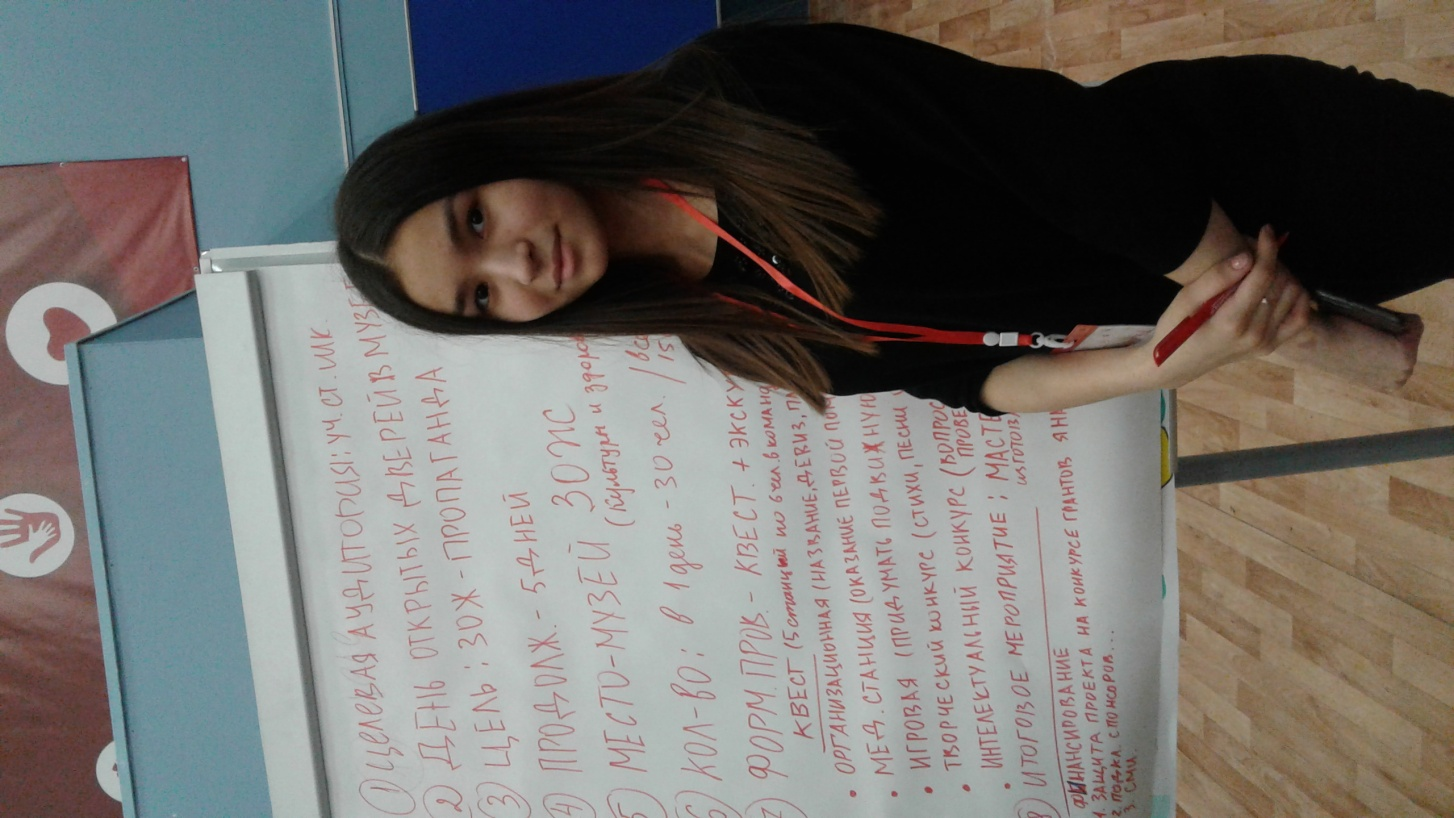 ① ЦЕЛЕВАЯ АУДИТОРИЯ: УЧ. СТ. ШК.
2) ДЕНЬ ОТКРЫТЫХ ДВЕРЕЙ В МУЗЕ
3) ЦЕЛЬ: ЗОЖ - ПРОПАГАНДА
4) ПРОДОЛЖ. - 5 ДНЕЙ
5) МЕСТО - МУЗЕЙ ЗОЖ
(культуры и здоров
6) КОЛ-ВО: в 1 день - 30 чел. / все
15
7) ФОРМ. ПРОВ. - КВЕСТ. + ЭКСК
КВЕСТ (5 станций по 6 чел. в команд
• ОРГАНИЗАЦИОННАЯ (НАЗВАНИЕ, ДЕВИЗ,
• МЕД. СТАНЦИЯ (ОКАЗАНИЕ ПЕРВОЙ ПО
• ИГРОВАЯ (ПРИДУМАТЬ ПОДВИЖНУЮ
• ТВОРЧЕСКИЙ КОНКУРС (СТИХИ, ПЕСНИ
• ИНТЕЛЕКТУАЛЬНЫЙ КОНКУРС (ВОПРОС
ПРОВЕ
8) ИТОГОВОЕ МЕРОПРИЯТИЕ: МАСТЕ
ФИНАНСИРОВАНИЕ
1. ЗАЩИТА ПРОЕКТА НА КОНКУРСЕ ГРАНТОВ
2. СПОНСОРОВ...
3. СМИ